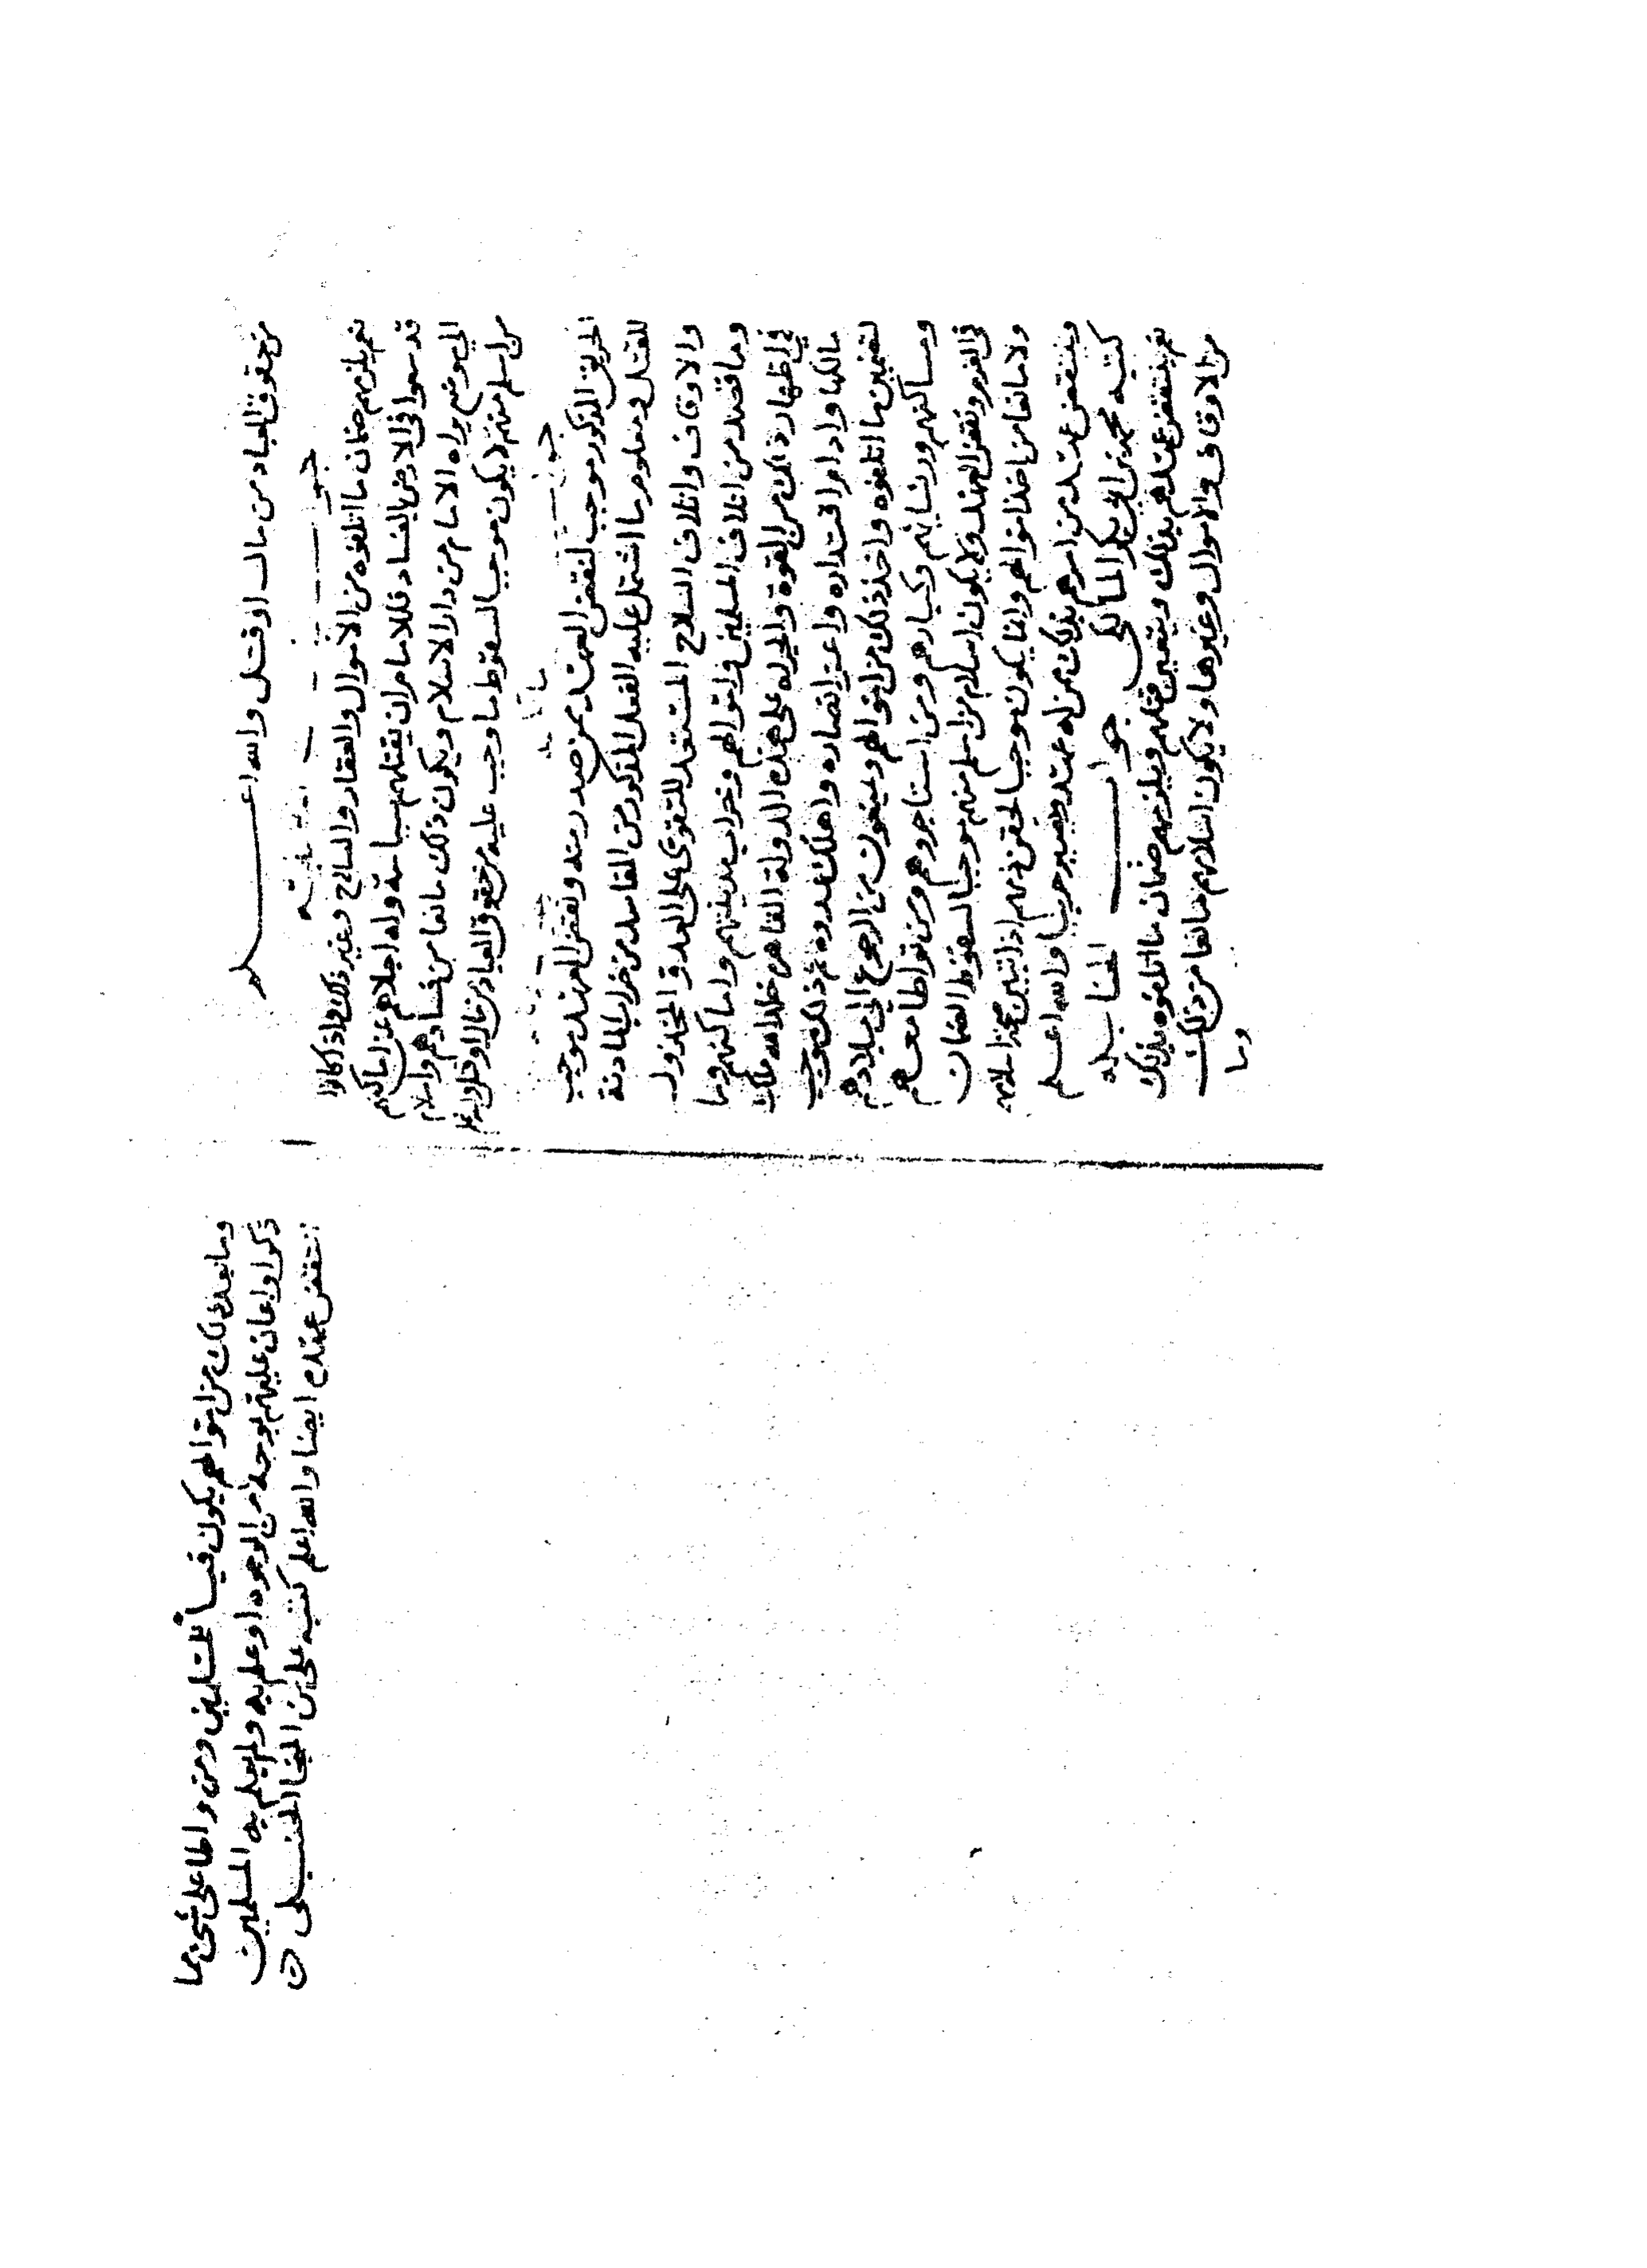 من حقوق العباد من مال او قتل والله اعلم
جواب
نعم يلزمهم ضمان ما اتلفوه من الاموال والعقار والسلاح وغير ذلك واذا كانوا
قد سعوا في الارض بالفساد فللامام ان يقتلهم سياسة وله اجلاهم عن اماكنهم
الى موضع يراه الامام من دار الاسلام ويكون ذلك مانعا من فسادهم واسلام
من اسلم منهم لا يكون موجبا لسقوط ما وجب عليه من حقوق العباد من مال او قتل والله اعلم
جواب
الحريق المذكور موجب لنقض العهد ممن صدر منه ونقض العهد موجب
للقتل ومعلوم ما اشتمل عليه الفعل المذكور من المفاسد من خراب المادنة
والاوقاف واتلاف السلاح المستعد للتقوى على العدو المخذول
وما قصد من اتلاف المسلمين واموالهم وخراب مدينتهم واماكنهم وما
في اظهار ذلك من القوة والحيلة على هذه الدولة القاهرة خلد الله ملك
مالكها وادام اقتداره واعز انصاره واهلك عدوه ثم ذلك موجب
لتضمين ما اتلفوه واخذ ذلك من اموالهم ويمنعون من الرجوع الى بلادهم
ومساكنهم ونسايهم وكبارهم ومن استاجروهم ومن تواطا معهم
في الغرم ونقض العهد ولا يكون اسلام من اسلم منهم موجبا لسقوط الضمان
ولا مانعا من اخذ اموالهم وانما يكون موجبا لحقن دمهم اذا تبين صحة اسلامهم
وينتقض عهد من امرهم بذلك ممن له عهد ويصير حربيا والله اعلم
كتبه محمد بن ابي بكر المالكي جواب الحنابلة
نعم ينتقض عهدهم بذلك ويتعين قتلهم ويلزمهم ضمان ما اتلفوه بذلك
من الاوقاف والاموال وغيرها ولا يكون اسلامهم مانعا من ذلك
وما
وما بعد ذلك من اموالهم يكون فيأ للمسلمين ومن واطا على شيء مما
ذكر او اعان عليهم بوجه من الوجوه او علم به ولم يعلم به المسلمين
انتقض عهده ايضا والله اعلم كتبه على بن المنجا الحنبلى